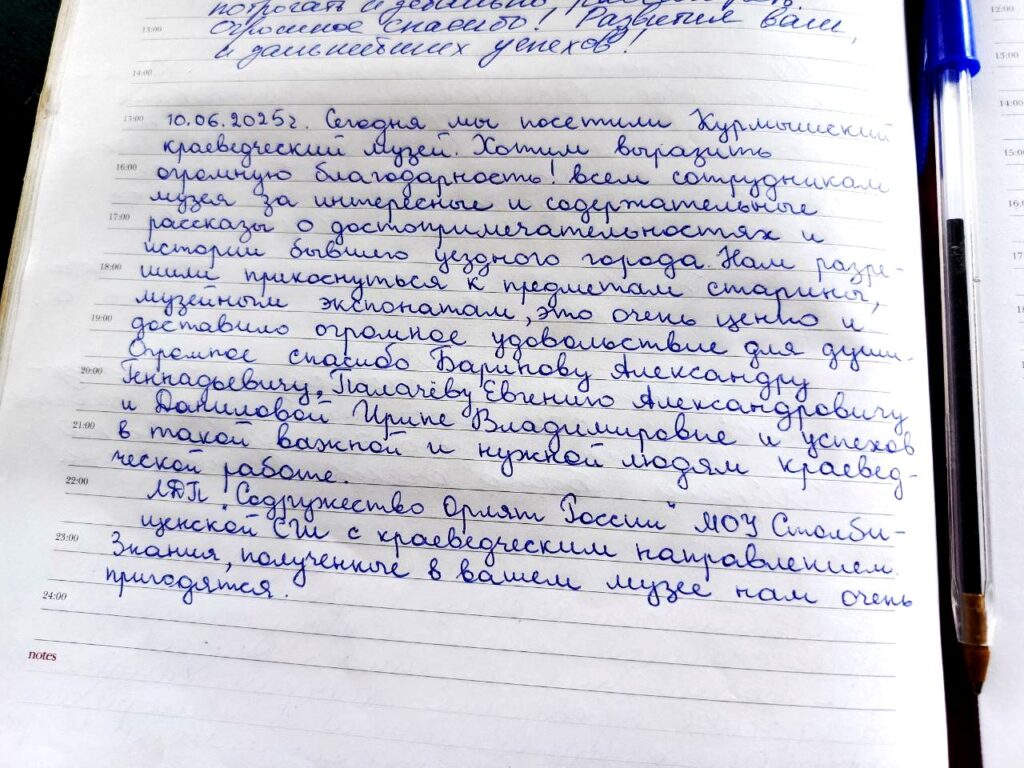 потрогать и детально
Огромное спасибо! Развития вам,
и дальнейших успехов!
13:00
14:00
15:00 10.06.2025г. Сегодня мы посетили Курмышский
краеведческий музей. Хотим выразить
16:00 огромную благодарность! всем сотрудникам
музея за интересные и содержательные
17:00 рассказы о достопримечательностях и
истории бывшего уездного города. Нам разре-
18:00 шили прикоснуться к предметам старины,
музейным экспонатам, это очень ценно и
19:00 доставило огромное удовольствие для души.
Огромное спасибо Баринову Александру
20:00 Геннадьевичу, Палачёву Евгению Александровичу
и Даниловой Ирине Владимировне и успехов
21:00 в такой важной и нужной людям краевед-
ческой работе.
22:00 ЛДП "Содружество Орлят России" МОУ Столби-
щенской СШ с краеведческим направлением.
23:00 Знания, полученные в вашем музее нам очень
пригодятся.
24:00
notes
12:00
13:00
14:00
15:00
16:00